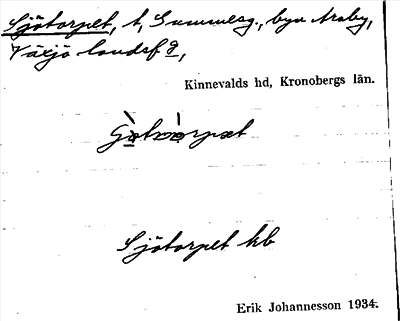 Sjötorpet, t, Gummesg., byn Araby,
Växjö landsf g,
Kinnevalds hd, Kronobergs län.
Sjötorpet kb
Erik Johannesson 1934.